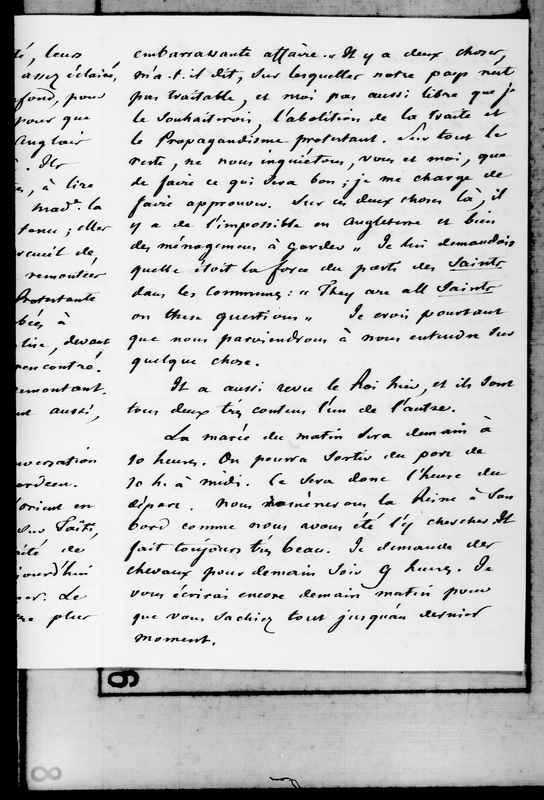 té, leurs
assez éclairé,
fond, pour
pour que
Anglais
. Ils
, à lire
Madᵉ. la
tenu ; elles
recueil de
remontées
Protestante
à
devant
rencontré.
remontant.
aussi,
conversation
erdeen.
l'orient en
sur Taïti,
de
jourd'hui
Le
plus
embarrassante affaire. « Il y a deux choses,
m'a-t-il dit, sur lesquelles notre pays n'est
pas traitable, et moi pas aussi libre que je
le souhaiterois, l'abolition de la traite et
le Propagandisme protestant. Sur tout le
reste, ne nous inquiétons, vous et moi, que
de faire ce qui sera bon ; je me charge de
faire approuver. Sur ces deux choses là, il
y a de l'impossible en Angleterre et bien
des ménagemens à garder » Je lui demandois
quelle étoit la force du parti des Saints
dans les Communes : « They are all Saints
on these questions » Je crois pourtant
que nous parviendrons à nous entendre sur
quelque chose.
Il a aussi revu le Roi hier, et ils sont
tous deux très contens l'un de l'autre.
La marée du matin sera demain à
10 heures. On pourra sortir du port de
10 h. à midi. Ce sera donc l'heure du
départ. Nous remènerons la Reine à son
bord comme nous avons été l'y chercher. Il
fait toujours très beau. Je demande des
chevaux pour demain soir 9 heures. Je
vous écrirai encore demain matin pour
que vous sachiez tout jusqu'au dernier
moment.
6
8